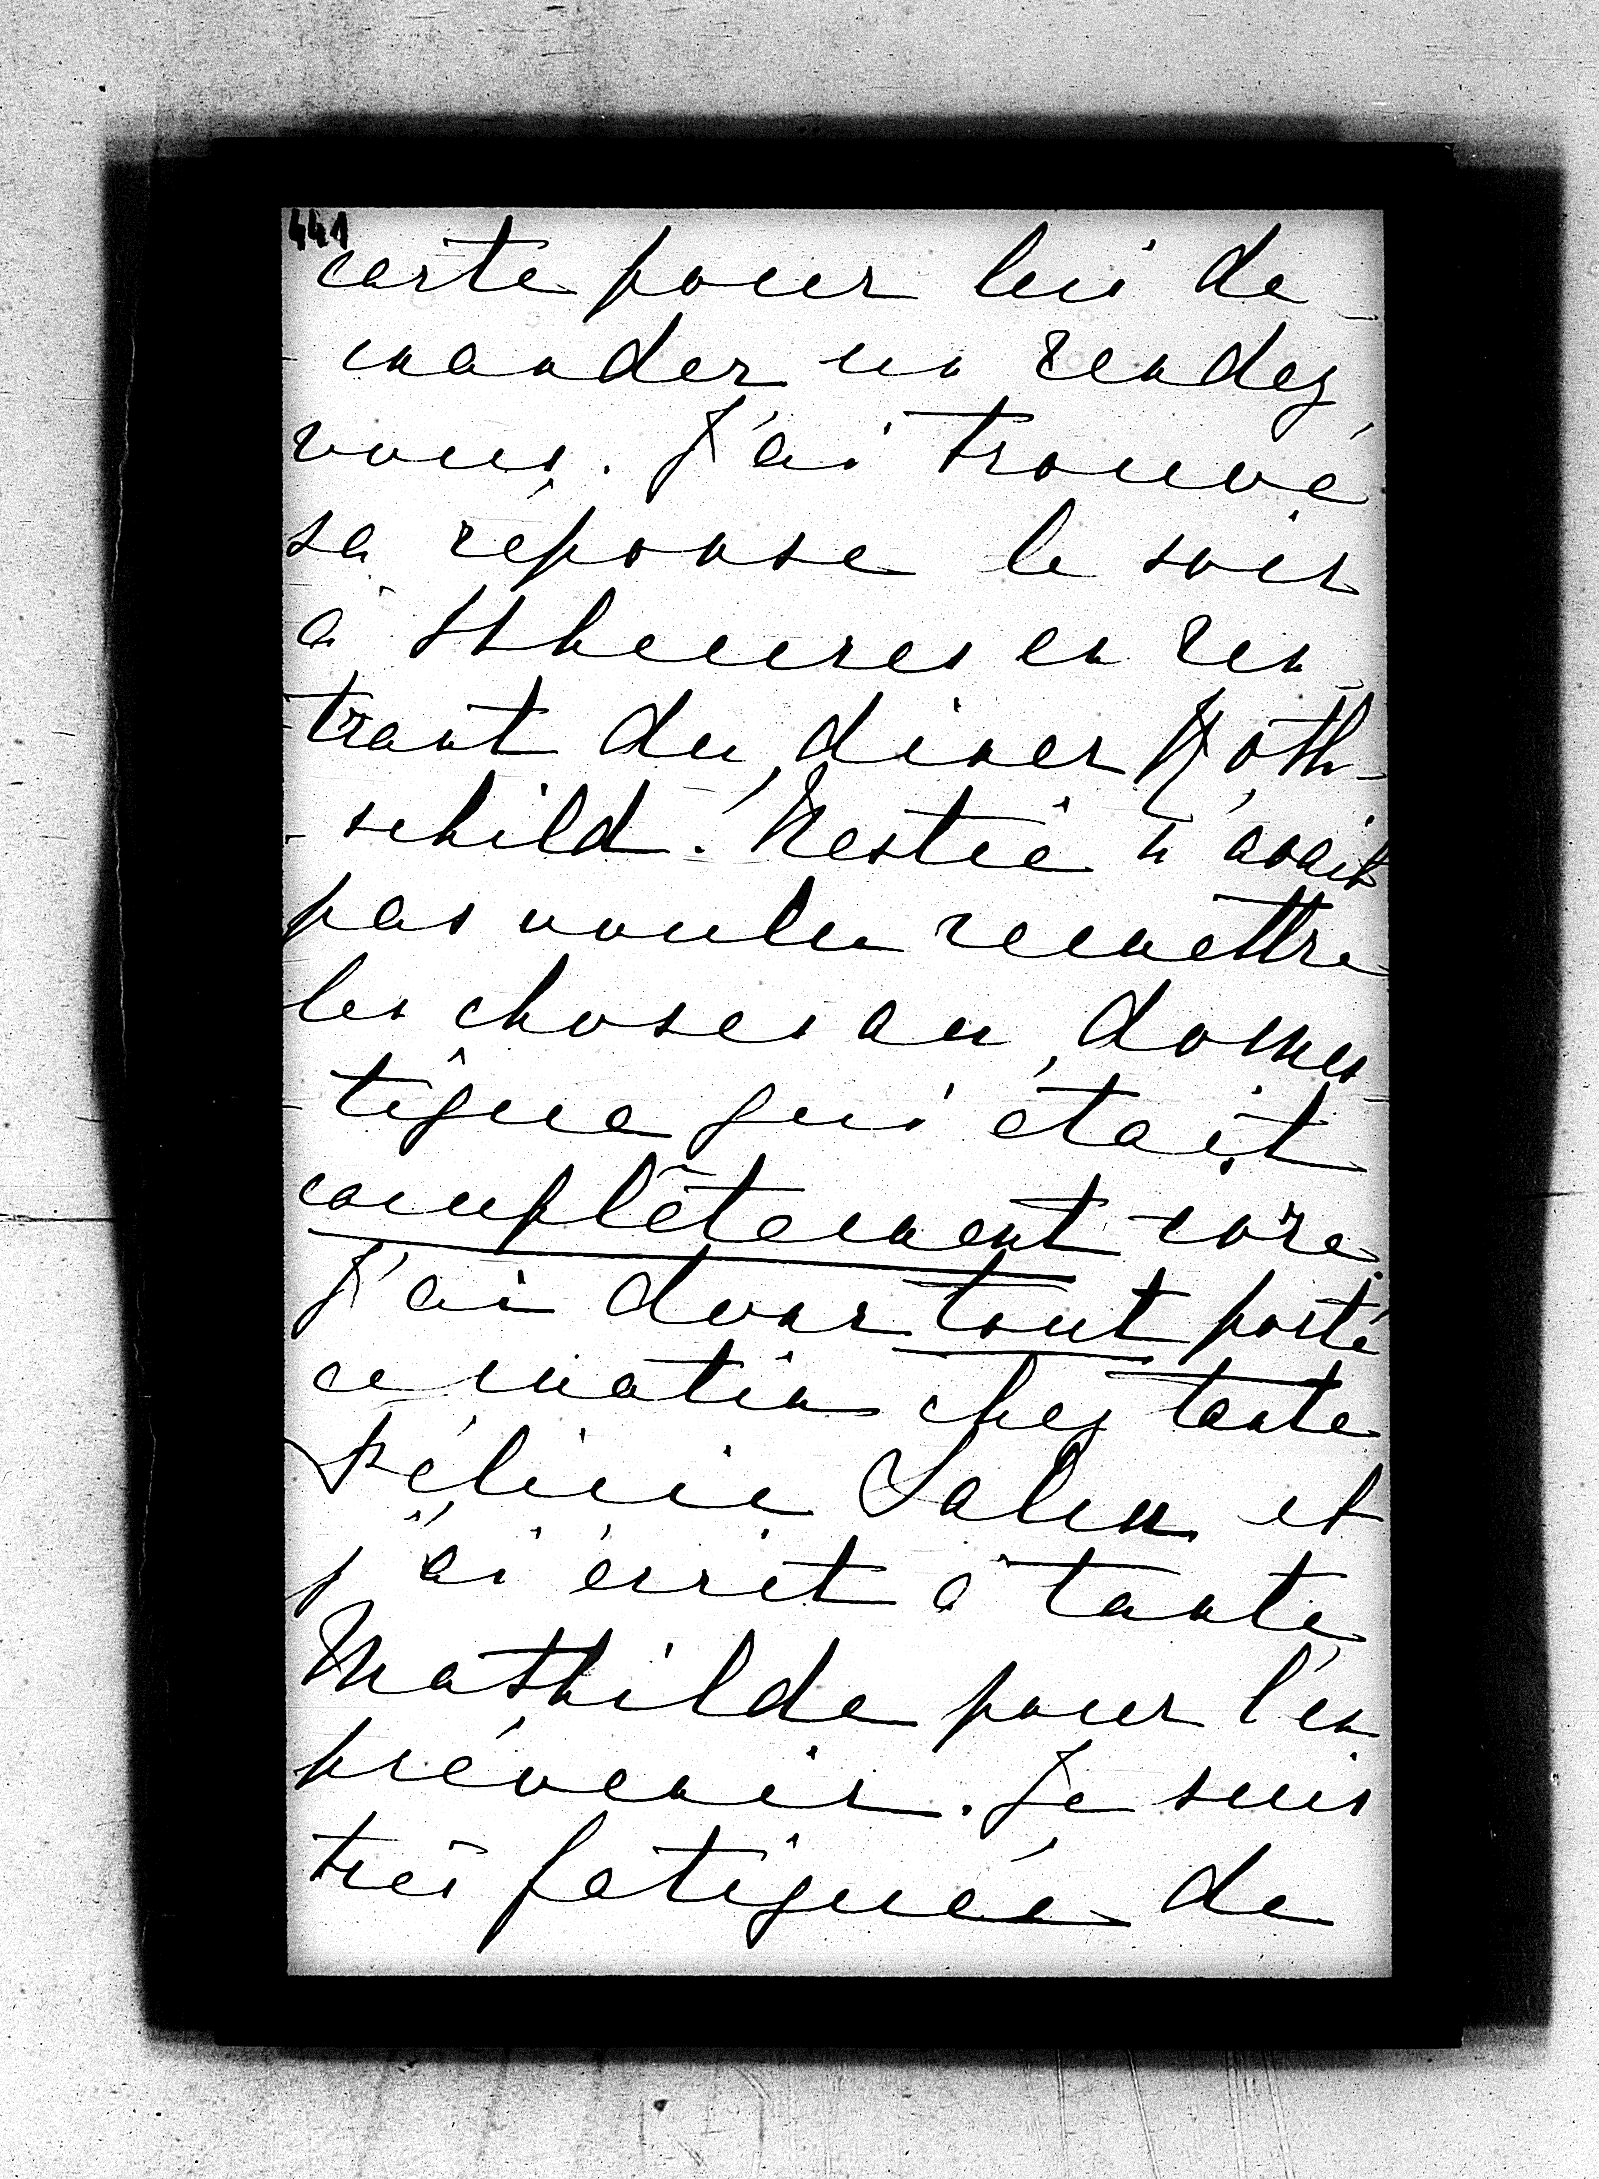 441
carte pour lui de-
-mander un rendez
vous. J'ai trouvé
sa réponse le soir
à heures en ren-
-trant du diner Roth-
-schild. n'avait
pas voulu remettre
les choses au domes-
-tique qui était
complètement ivre.
J'ai donc tout porté
ce matin chez tante
Félicie et
j'ai écrit à tante
Mathilde pour l'en
prévenir. Je suis
très fatiguée de